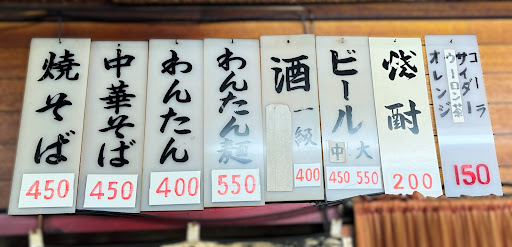 焼そば
450
中華そば
450
わんたん
400
わんたん麺
550
酒 一級
400
ビール 大
中
450 550
焼酎
200
コーラ
サイダー
ウーロン茶
オレンジ
150